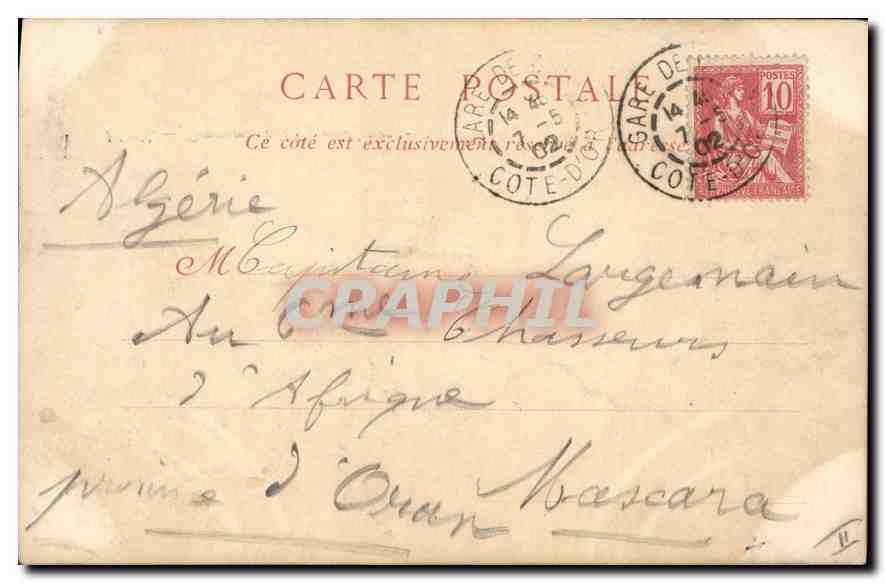 CARTE POSTALE
Ce côté est exclusivement réservé à l'adresse
GARE DE
14 40
7 -5
02
COTE-D'OR
GARE DE
14 40
7 -5
02
COTE-D'OR
POSTES
10
FRANÇAISE
Algérie
M Capitaine Largemain
CRAPHIL
Au 6me Chasseurs
d'Afrique
province d'Oran Mascara
II